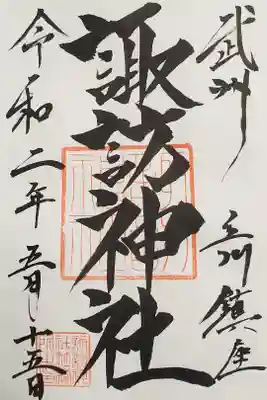 武州 立川鎮座
諏訪神社
令和二年五月十五日